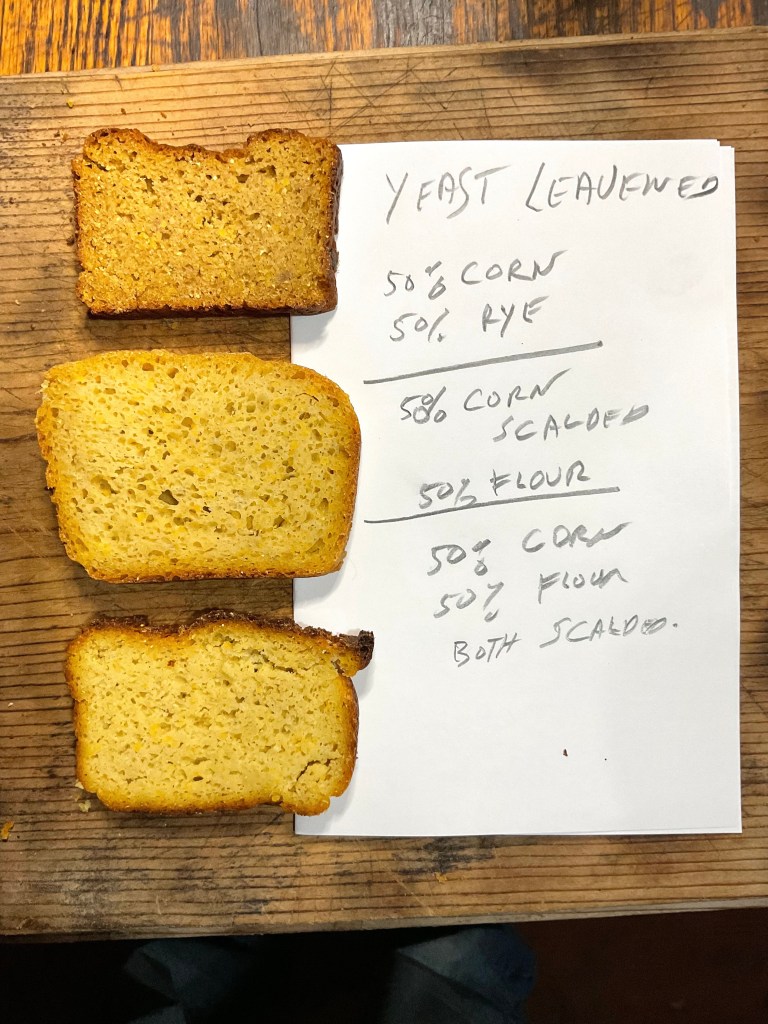 YEAST LEAVENED
50% CORN
50% RYE
50% CORN
SCALDED
50% FLOUR
50% CORN
50% FLOUR
BOTH SCALDED.